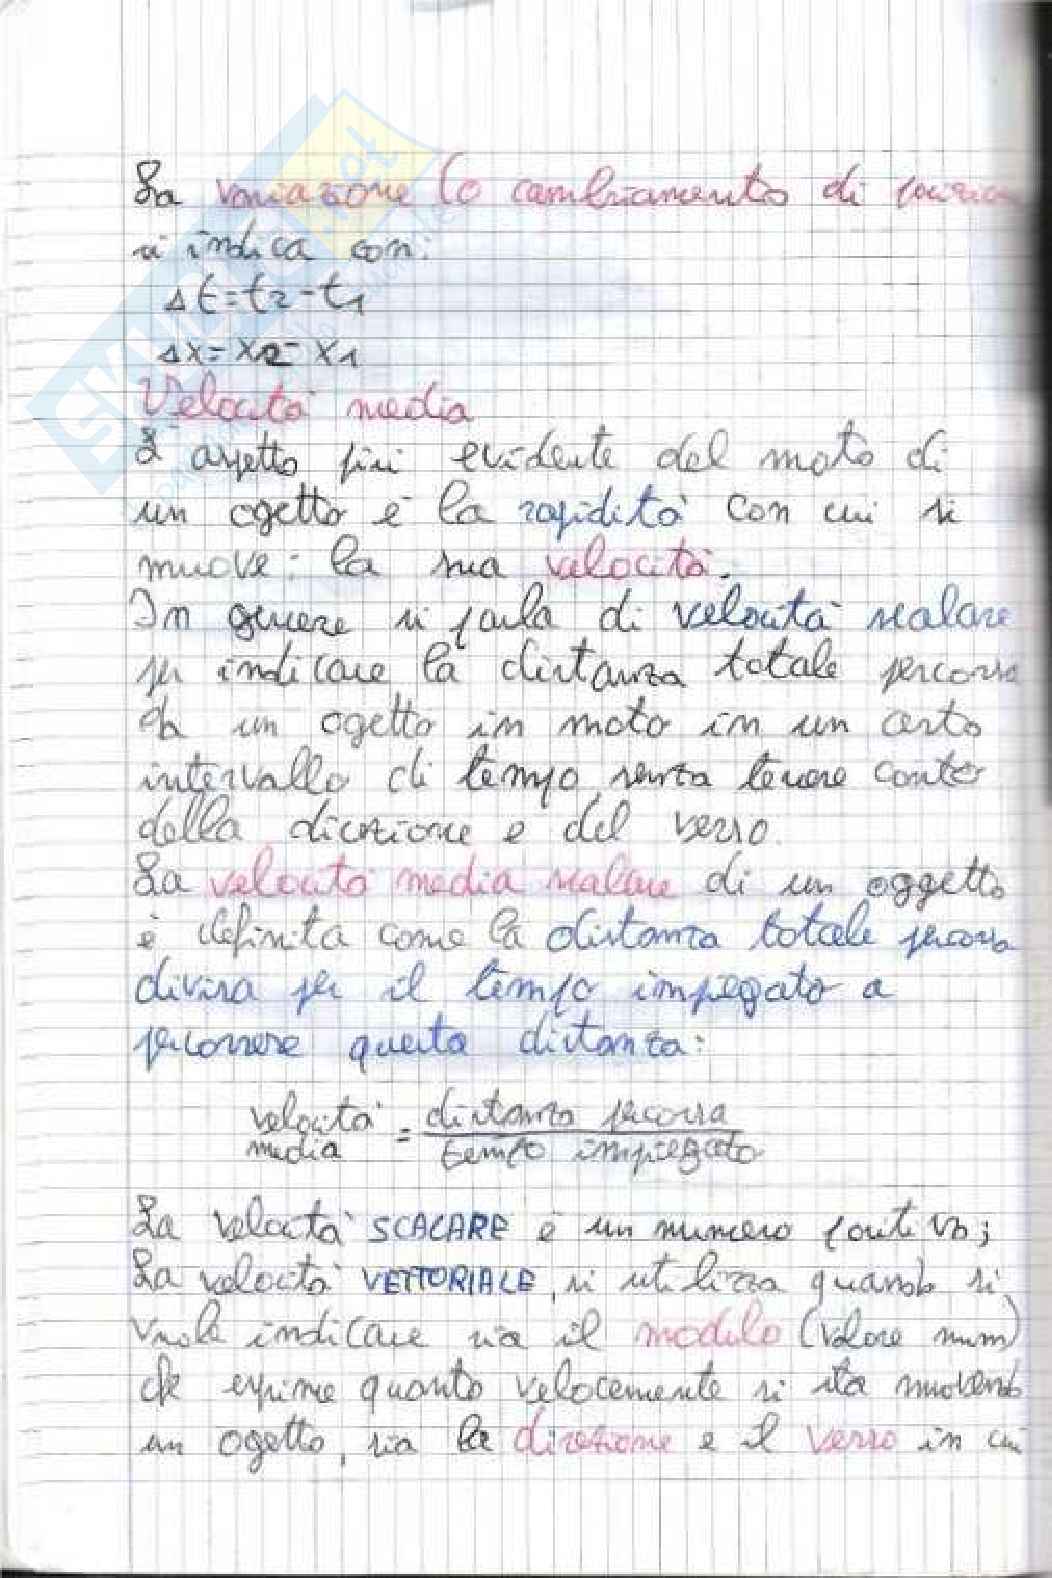 La variazione (o cambiamento di
si indica con:
Δt=t2-t1
Δx=x2-x1
Velocità media
L'aspetto più evidente del moto di
un ogetto è la rapidità con cui si
muove: la sua velocità.
In genere si parla di velocità scalare
per indicare la distanza totale percorsa
da un ogetto in moto in un certo
intervallo di tempo, senza tenere conto
della direzione e del verso.
La velocità media scalare di un oggetto
è definita come la distanza totale percorsa
divisa per il tempo impiegato a
percorrere questa distanza:
velocità media = distanza percorsa / tempo impiegato
La velocità SCALARE è un numero positivo;
La velocità VETTORIALE, si utilizza quando si
vuole indicare sia il modulo (valore num)
che esprime quanto velocemente si sta muovendo
un ogetto, sia la direzione e il verso in cui